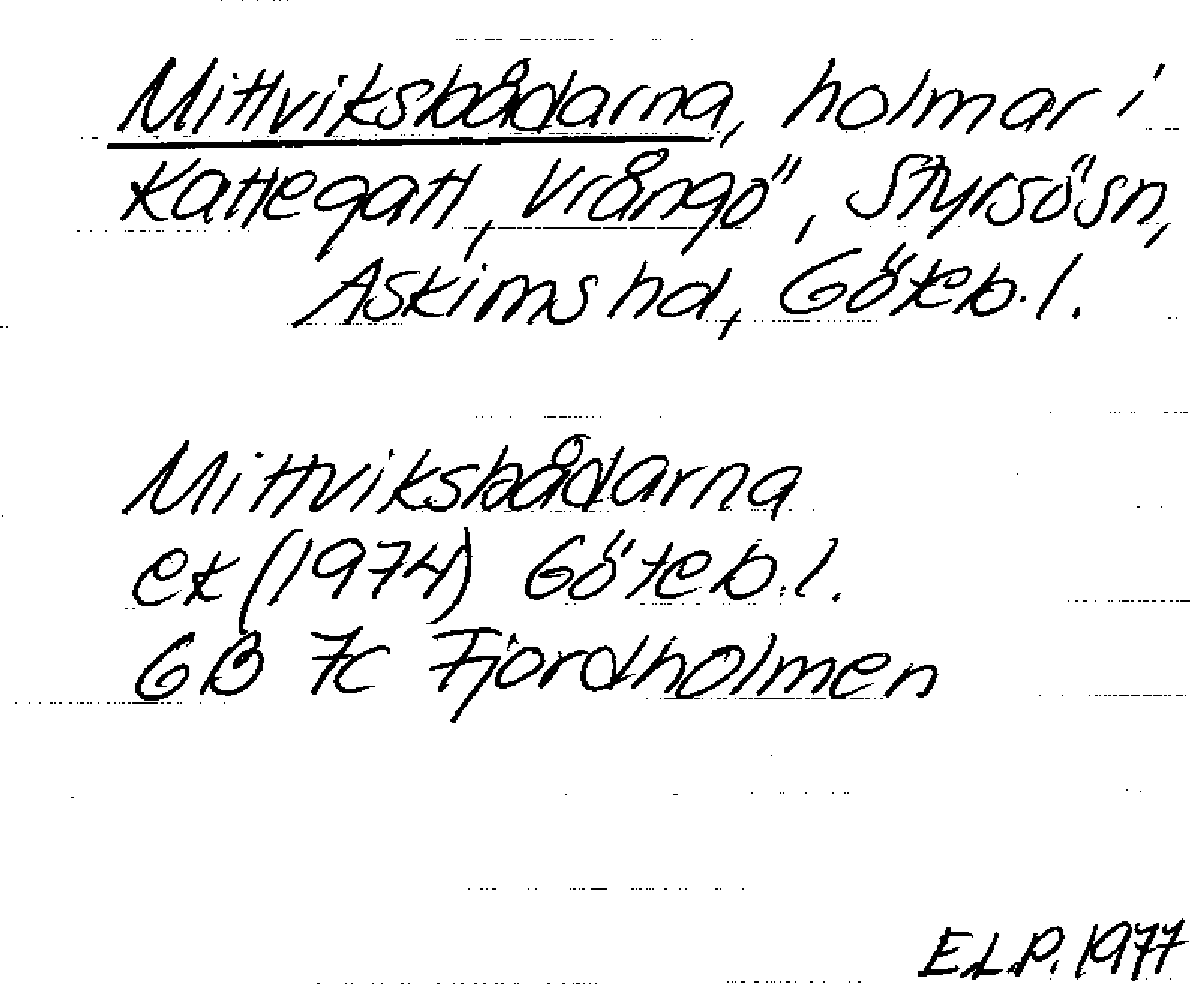 Mittviksbådarna, holmar i
Kattegatt, Vrångö, Styrsö sn,
Askims hd, Göteb. l.
Mittviksbådarna
ek (1974) Göteb. l.
GB 7c Fjordholmen
E.L.P. 1977